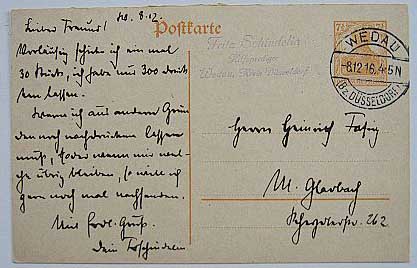 Lieber Freund! 8.12.
Vorläufig schicke ich ein mal
30 Stück, ich habe nur 300 druk
ken lassen.
Wenn ich aus andern Grün
den noch nachdrucken lassen
muß, so daß mir
übrig bleiben, so
gern noch mal nachsenden.
Mit frdl. Gruß.
Dein
Postkarte
Fritz Schindelin
Hilfsprediger
Wedau, Kreis Düsseldorf
7½
WEDAU
-8.12.16.4-5N
(Bz. DÜSSELDORF)
Herrn Heinrich
M. Gladbach
262